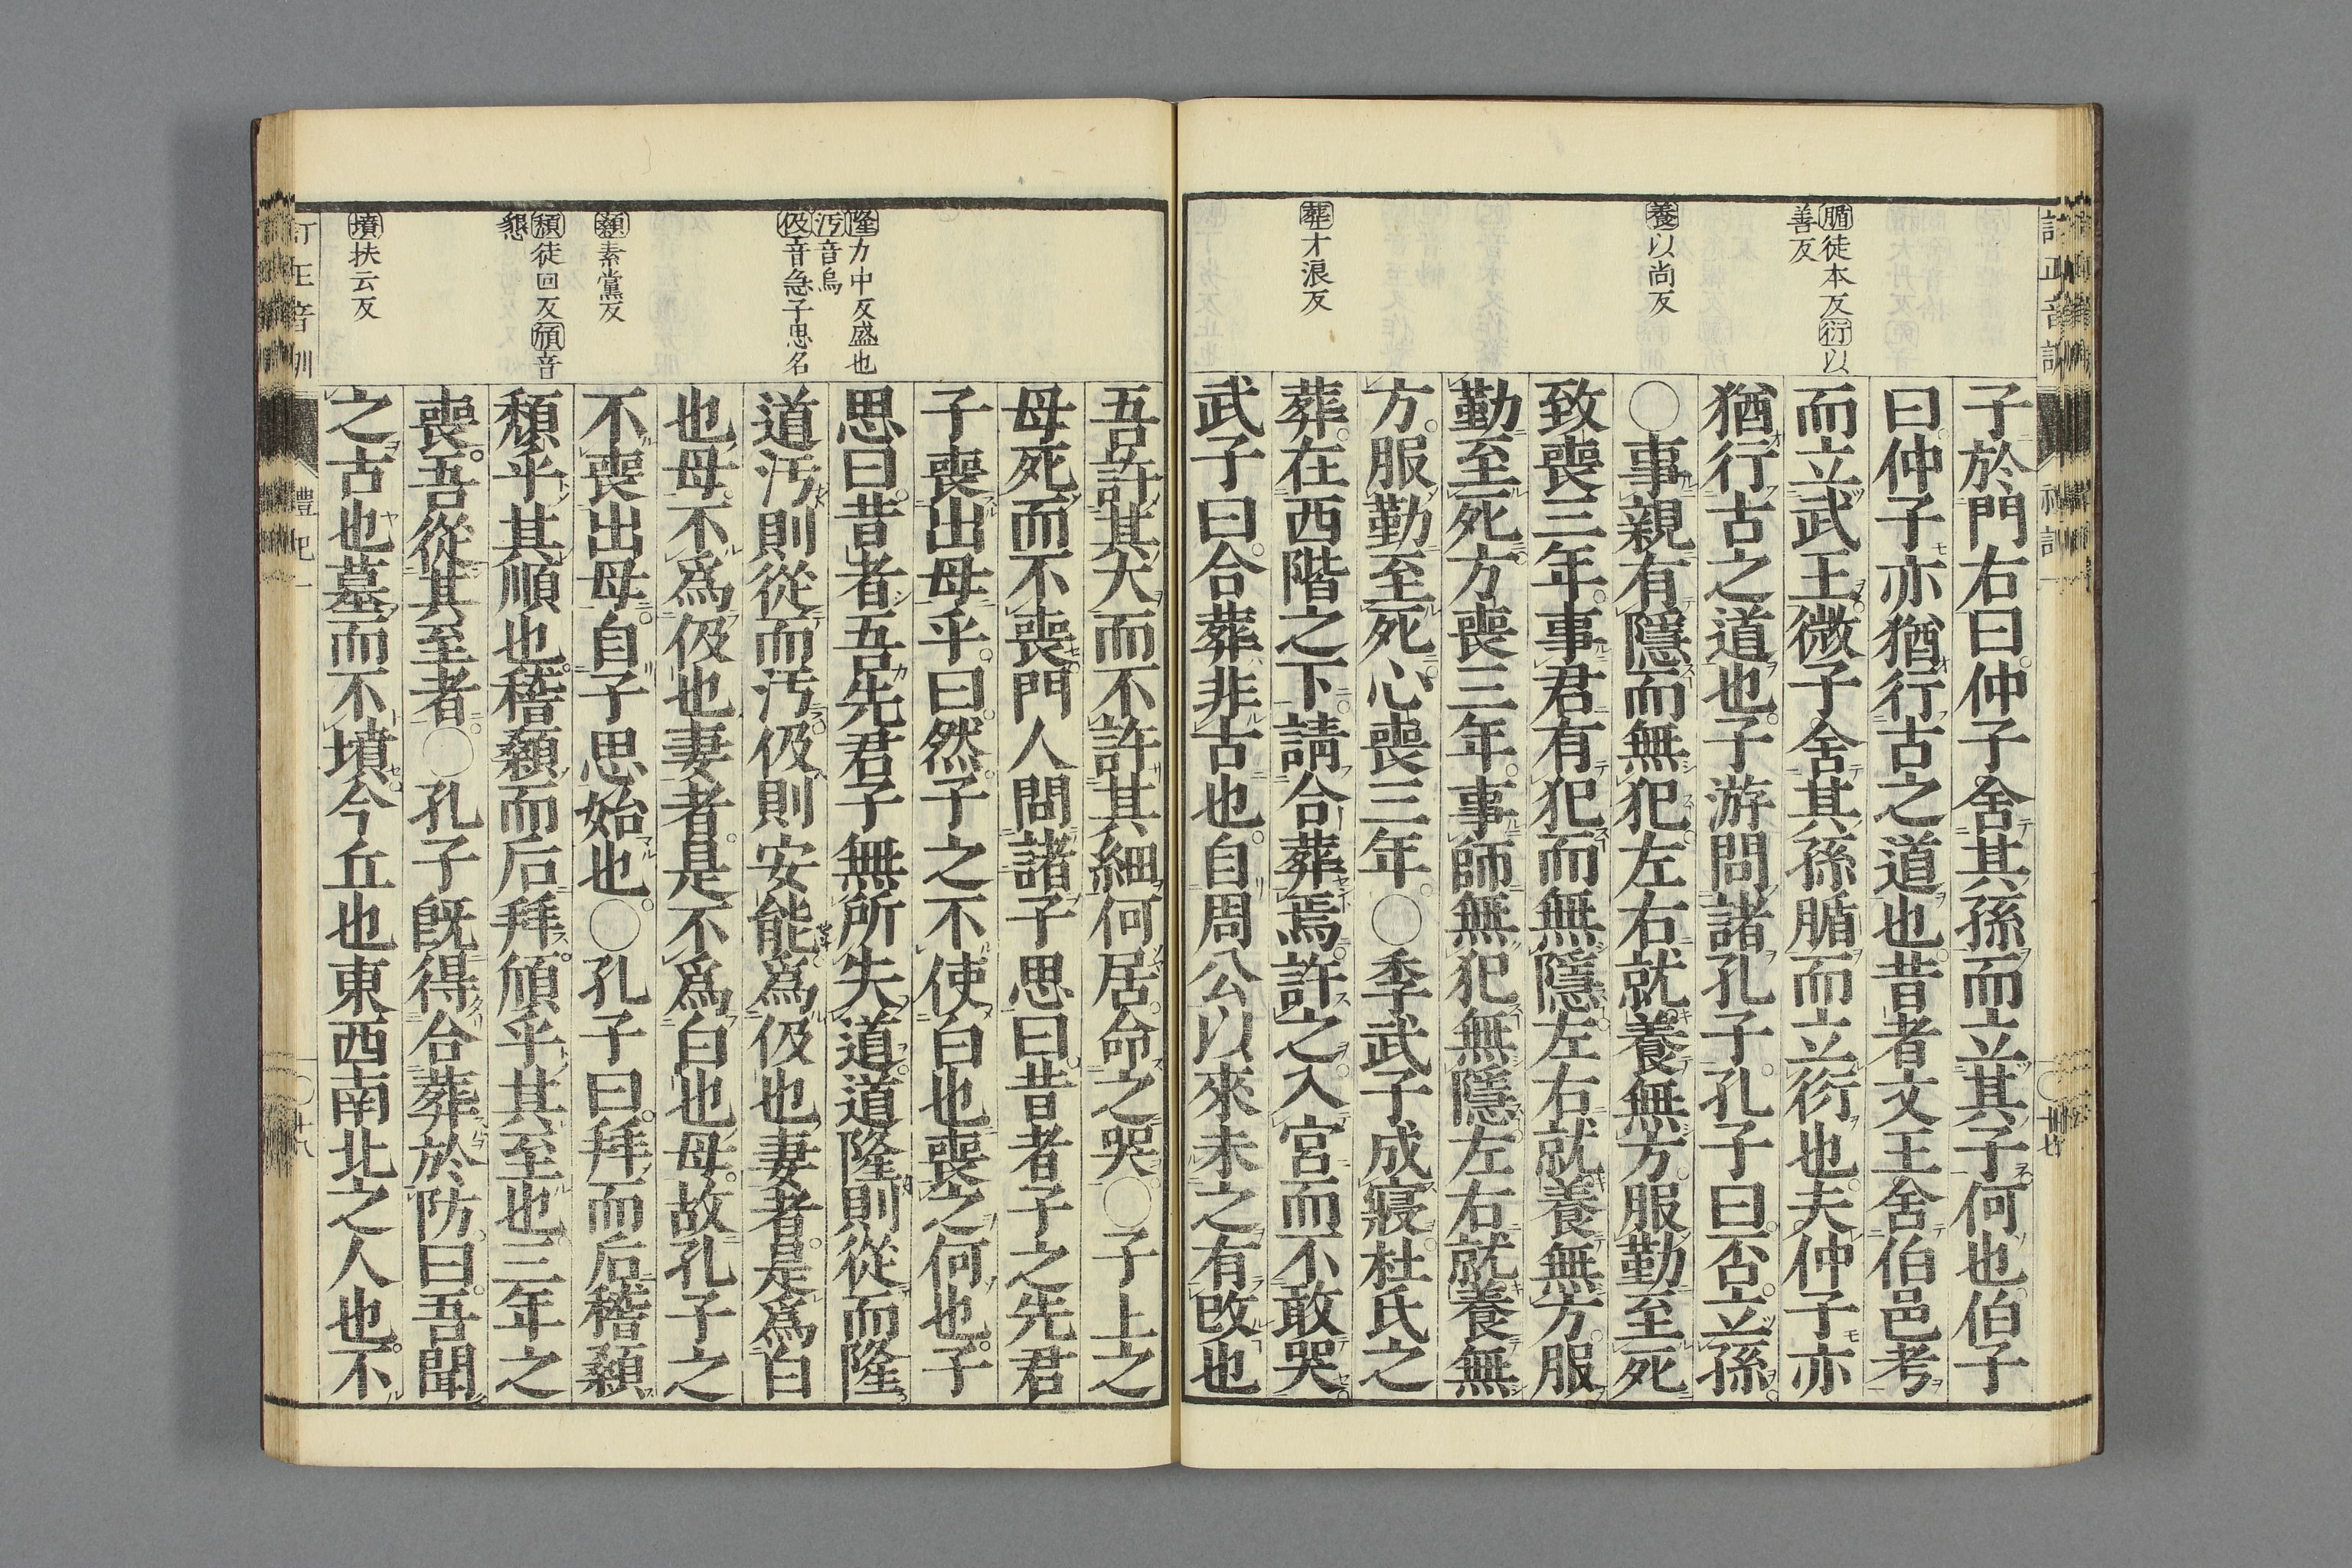 腯徒本反衍以
善反
養以尚反
葬才浪反
子於門右曰仲子舍其孫而立其子何也伯子
曰仲子亦猶行古之道也昔者文王舍伯邑考
而立武王微子舍其孫腯而立衍也夫仲子亦
猶行古之道也子游問諸孔子孔子曰否立孫
○事親有隱而無犯左右就養無方服勤至死
致喪三年事君有犯而無隱左右就養無方服
勤至死方喪三年事師無犯無隱左右就養無
方服勤至死心喪三年○季武子成寢杜氏之
葬在西階之下請合葬焉許之入宮而不敢哭
武子曰合葬非古也自周公以來未之有改也
隆力中反盛也
汚音烏
伋音急子思名
顙素黨反
頽徒回反頎音
懇
墳扶云反
吾許其大而不許其細何居命之哭○子上之
母死而不喪門人問諸子思曰昔者子之先君
子喪出母乎曰然子之不使白也喪之何也子
思曰昔者吾先君子無所失道道隆則從而隆
道汚則從而汚伋則安能爲伋也妻者是爲白
也母不爲伋也妻者是不爲白也母故孔子之
不喪出母自子思始也○孔子曰拜而后稽顙
頽乎其順也稽顙而后拜頎乎其至也三年之
喪吾從其至者○孔子旣得合葬於防曰吾聞
之古也墓而不墳今丘也東西南北之人也不
訂正音訓
禮記一
○廿八